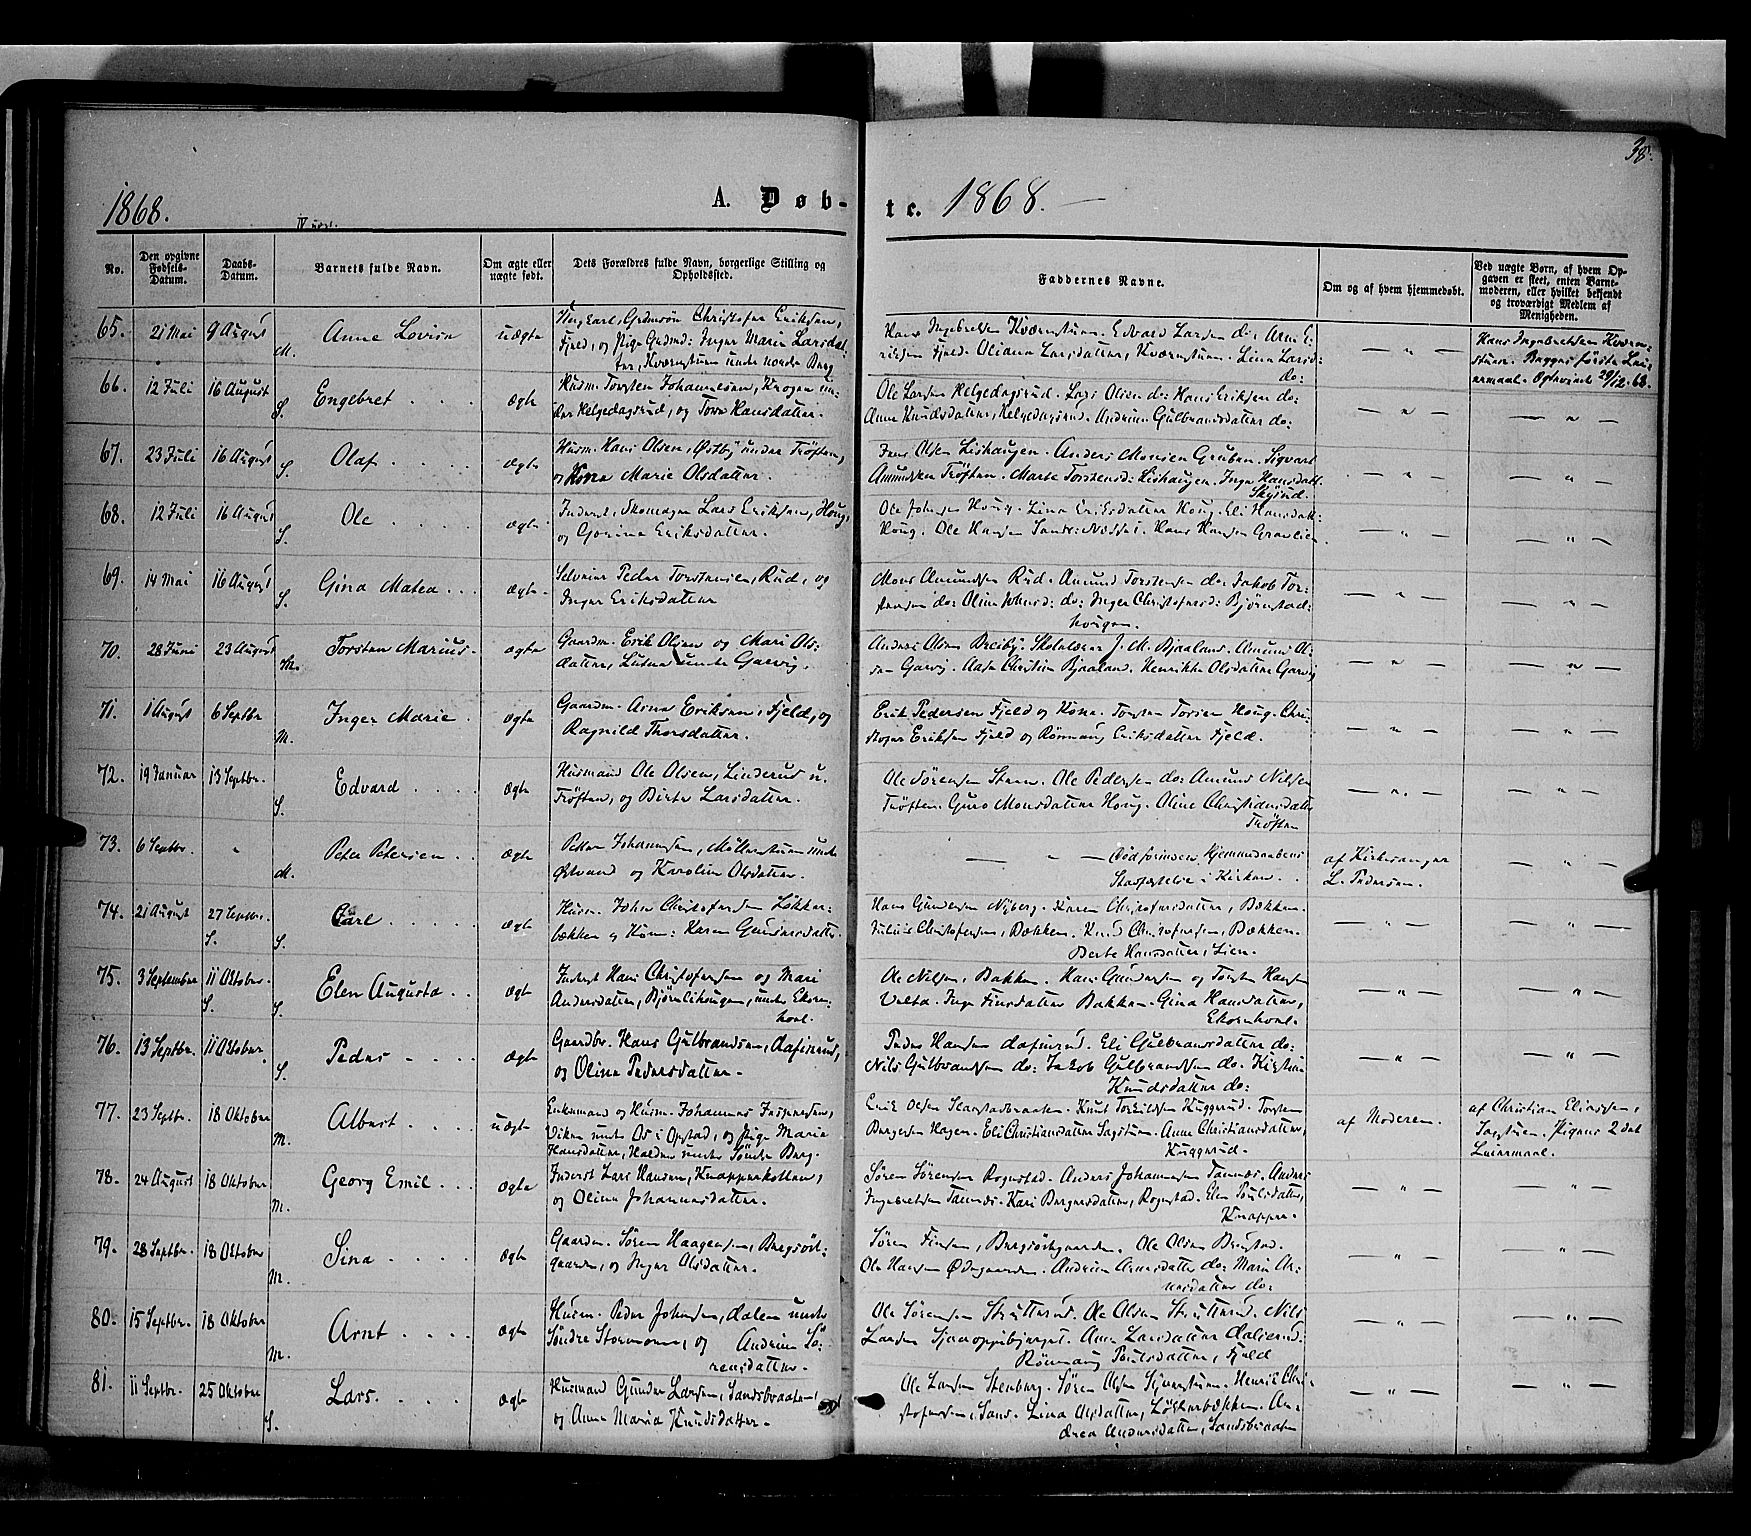 38.
1868.
A. Døb-
te. 1868.
No.
Den opgivne Fødsels-Datum.
Daabs-Datum.
Barnets fulde Navn.
Om ægte eller uægte født.
Dets Forældres fulde Navn, borgerlige Stilling og Opholdssted.
Faddernes Navne.
Om og af hvem hjemmedøbt.
Ved uægte Børn, af hvem Opgaven er skeet, enten Barnemoderen, eller hvilket bekjendt og troværdigt Medlem af Menigheden.
65. 21 Mai 9 August M. Anne Lovise uægte
Christofer Eriksen,
Fjeld, og Pige Inger Marie Larsdat-
ter, Kværnstuen under nordre Berg
Hans Ingebretsen Kværnstuen. Edvard Larsen do: Arne E-
riksen Fjeld. Oliana Larsdatter, Kværnstuen. Lina Larsd:
do:
Hans Ingebretsen Kværn-
stuen. Begges første Lei-
ermaal.
66. 12 Juli 16 August S. Engebret ægte
Husm. Torsten Johannesen, Krogen un-
der Helgedagsrud, og Tore Hansdatter.
Ole Larsen Helgedagsrud. Lars Olsen do: Hans Eriksen do:
Anne Knudsdatter, Helgedagsrud. Andrine Gulbrandsdatter do:
67. 23 Juli 16 August S. Olaf ægte
Husm. Hans Olsen, Østby under Trøften,
og Kone Marie Olsdatter.
Jens Olsen Lishaugen. Anders Monsen Gruben. Sigvart
Amundsen Trøften. Marte Torstensd: Lishaugen. Inger Hansdatt.
68. 12 Juli 16 August S. Ole ægte
Inderst, Skomager Lars Eriksen, Houg,
og Gorine Eriksdatter.
Ole Johnsen Houg. Lina Eriksdatter Houg. Eli Hansdatt:
Houg. Ole Hansen Hans Hansen Gravlien.
69. 14 Mai 16 August S. Gina Matea ægte
Selveier Peder Torstensen, Rud, og
Inger Eriksdatter
Mons Amundsen Rud. Amund Torstensen do: Jakob Tor-
stensen do: Oline Johnsd: do: Inger Christofersd: Bjørnstad-
hougen.
70. 28 Juni 23 August M. Torsten Marius ægte
Gaardm. Erik Olsen og Mari Ols-
datter, under Garvig.
Anders Olsen Breiby. Skolelærer J. M. Bjaaland. Amund Ol-
sen Garvig. Aase Christine Bjaaland. Henrikke Olsdatter Garvig
71. 1 August 6 Septbr M. Inger Marie ægte
Gaardm. Arne Eriksen, Fjeld, og
Ragnild Thorsdatter.
Erik Pedersen Fjeld og Kone. Torsten Torsen Houg. Chri-
stofer Eriksen Fjeld og Rønnaug Eriksdatter Fjeld.
72. 19 Januar 13 Septbr. S. Edvard ægte
Husmand Ole Olsen, Linderud u.
Trøften, og Birte Larsdatter.
Ole Sørensen Steen. Ole Pedersen do: Amund Nilsen
Trøften. Guro Monsdatter Houg. Oline Christiansdatter
Trøften
73. 6 Septbr. " M. Peter Petersen ægte
Petter Johannesen, Møllerstuen under
Østvand og Karoline Olsdatter.
Død forinden Hjemmedaabens
Stadfæstelse i Kirken.
af Kirkesanger
L. Pedersen.
74. 21 August 27 Septbr. S. S. Carl ægte
Husm. John Christofersen Løkker-
bækken og Kone: Karen Gundersdatter.
Hans Gundersen Nyberg. Karen Christofersdatter, Bækken.
Julius Christofersen, Bækken. Knud Christofersen, Bækken.
Berte Hansdatter, Lien.
75. 3 September 11 Oktober. S. S. Elen Augusta ægte
Inderst Hans Christofersen og Mari
Andersdatter, Bjørnlihougen, under Ekorn-
hovl.
Ole Nilsen, Bakken. Hans Gundersen og Torsten Hansen
Velta. Inger Finsdatter Bakken. Gina Hansdatter,
Ekornhovl.
76. 13 Septbr. 11 Oktober S. Peder ægte
Gaardbr. Hans Gulbrandsen, Dafinrud,
og Oline Pedersdatter.
Peder Hansen Dafinrud. Eli Gulbrandsdatter do:
Nils Gulbrandsen do: Jakob Gulbrandsen do. Kirstine
Knudsdatter do:
77. 23 Septbr. 18 Oktober M. Albert uægte
Enkemand og Husm. Johannes Jespersen,
Viken under Os i Opstad, og Pige Marie
Hansdatter, Halden under Søndre Berg.
Erik Olsen Skarstadbraaten. Knut Torkildsen Kuggerud. Torsten
Borgersen Hagen. Eli Christiansdatter Sagstuen. Anne Christiansdatter,
Kuggerud.
af Moderen.
af Christian Eliassen,
Sagstuen. Pigens 2det
Leiermaal.
78. 24 August 18 Oktober M. Georg Emil ægte
Inderst Lars Hansen, Knapperkolten,
og Oline Johannesdatter.
Søren Sørensen Rognstad. Anders Johannesen Tannæs. Anders
Ingebretsen Tannæs. Kari Borgersdatter, Rognstad. Elen Poulsdatter,
Knapper.
79. 28 Septbr. 18 Oktober M. Sina ægte
Gaardm. Søren Haagensen, Bergsøde-
gaarden, og Inger Olsdatter.
Søren Finsen, Bergsødegaarden. Ole Olsen Brustad.
Ole Hansen Ødegaarden. Andrine Arnesdatter do: Marie An-
dersdatter do:
80. 15 Septbr. 18 Oktober M. Arnt ægte
Husm. Peder Johnsen, Dalen under
Søndre Stormoen, og Andrine Sø-
rensdatter.
Ole Sørensen Strutterud. Ole Olsen Strutterud. Nils
Larsen Anne Larsdatter Dalserud.
Rønnaug Poulsdatter, Fjeld
81. 11 Septbr. 25 Oktober S. Lars. ægte
Husmand Gunder Larsen, Sandsbraaten,
og Anne Maria Knudsdatter.
Ole Larsen Stenberg. Søren Olsen Henrik Chri-
stofersen, Sand. Lina Olsdatter, Løkkerbækken. An-
drea Andersdatter, Sandsbraaten